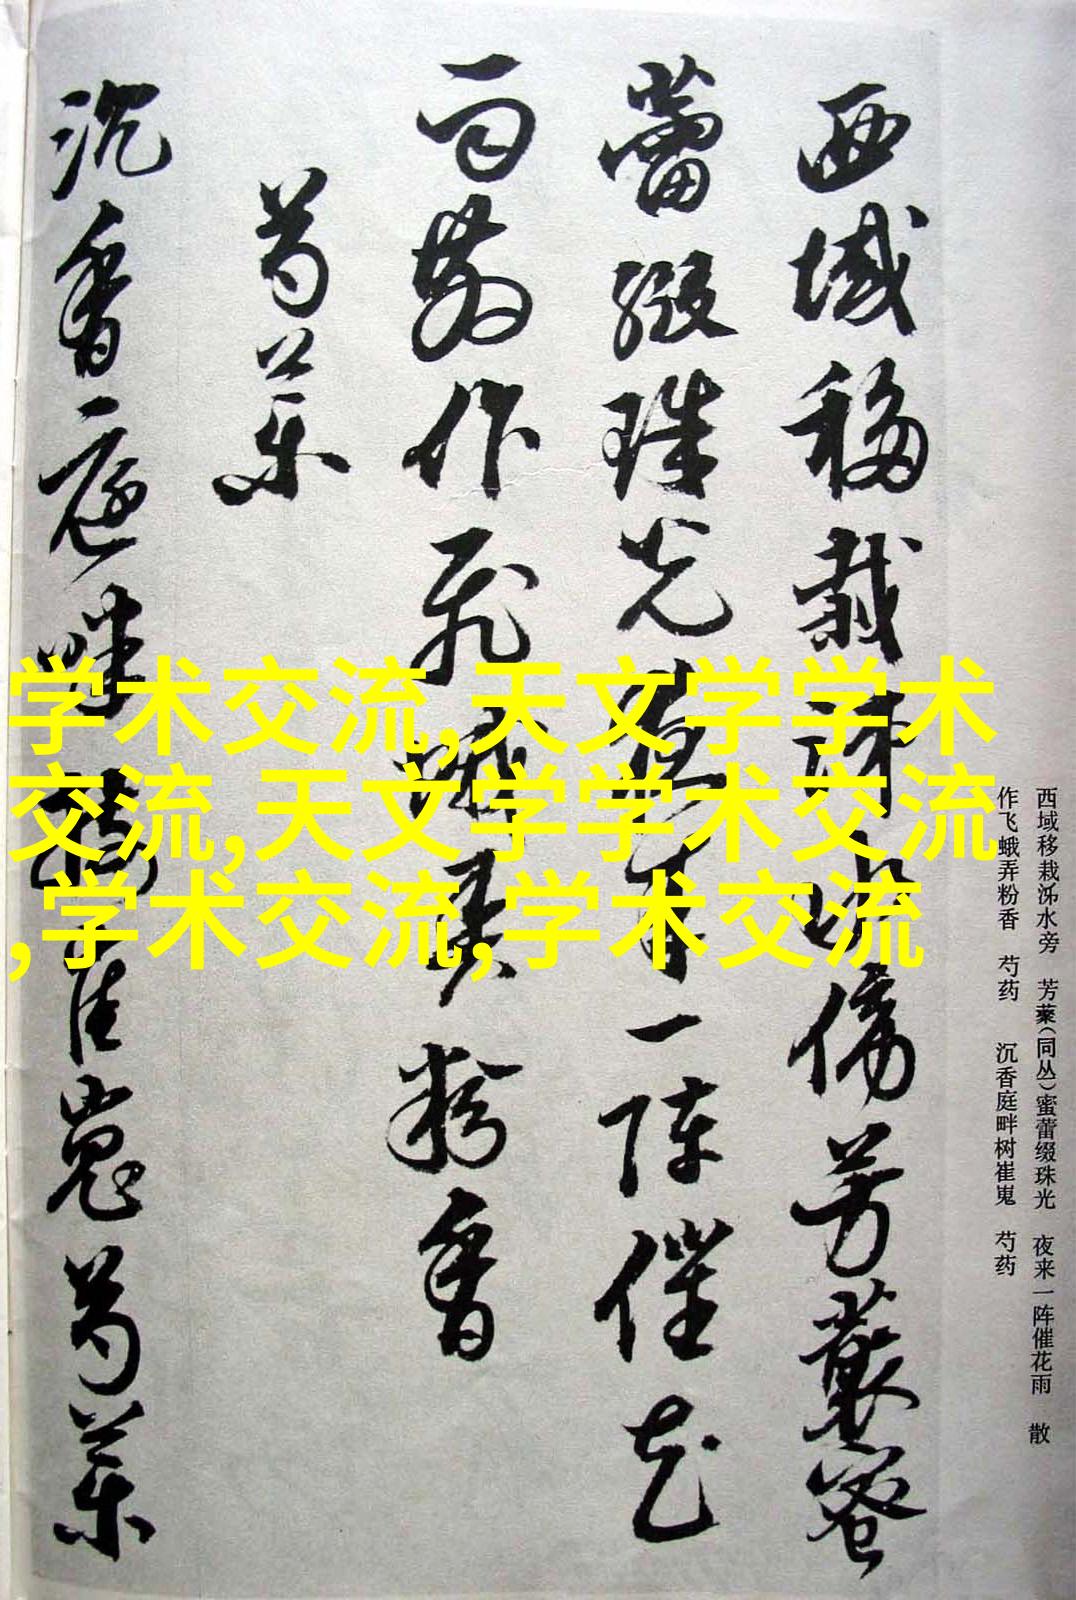 西域移栽泲水旁 芳藂(同丛)蜜蕾缀珠光 夜来一阵催花雨 散
作飞蛾弄粉香 芍药 沉香庭畔树崔嵬 芍药
西域移栽泲水傍芳藂蜜
蕾缀珠光夜来一陣催花
雨散作飛蛾弄粉香
芍藥
沉香庭畔樹崔嵬芍藥
学术交流,天文学学术
交流,天文学学术交流
,学术交流,学术交流